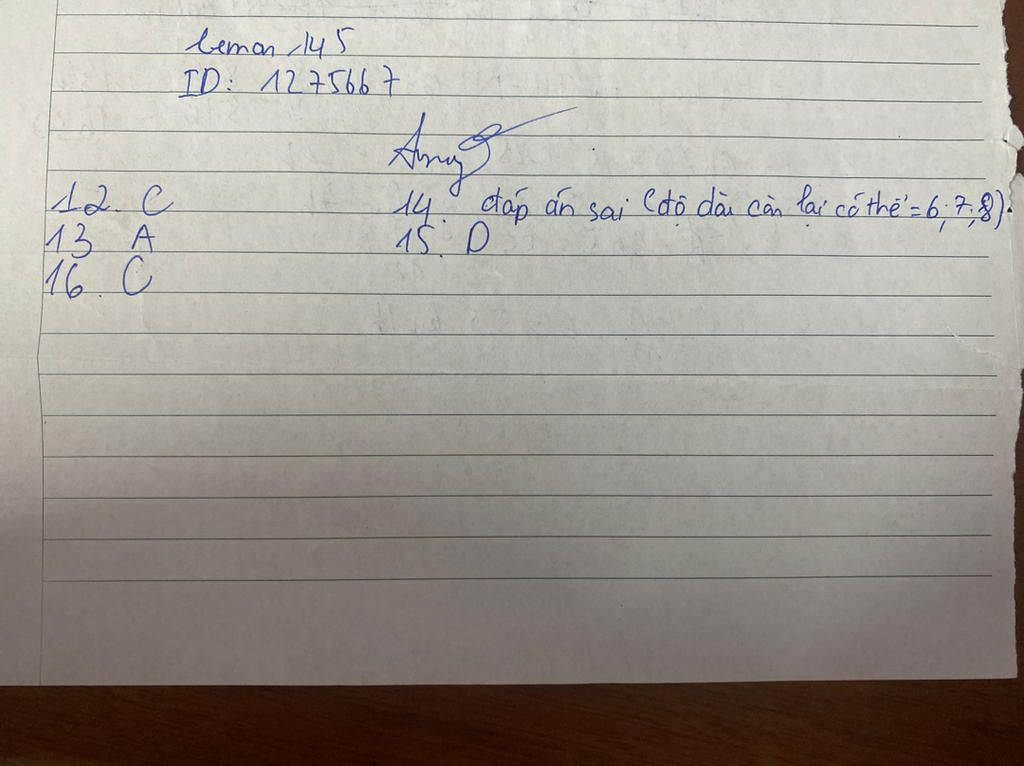 leman 145
ID: 1275667
12. C
14. đáp án sai (độ dài còn lại có thể = 6; 7; 8).
13 A
15. D
16. C